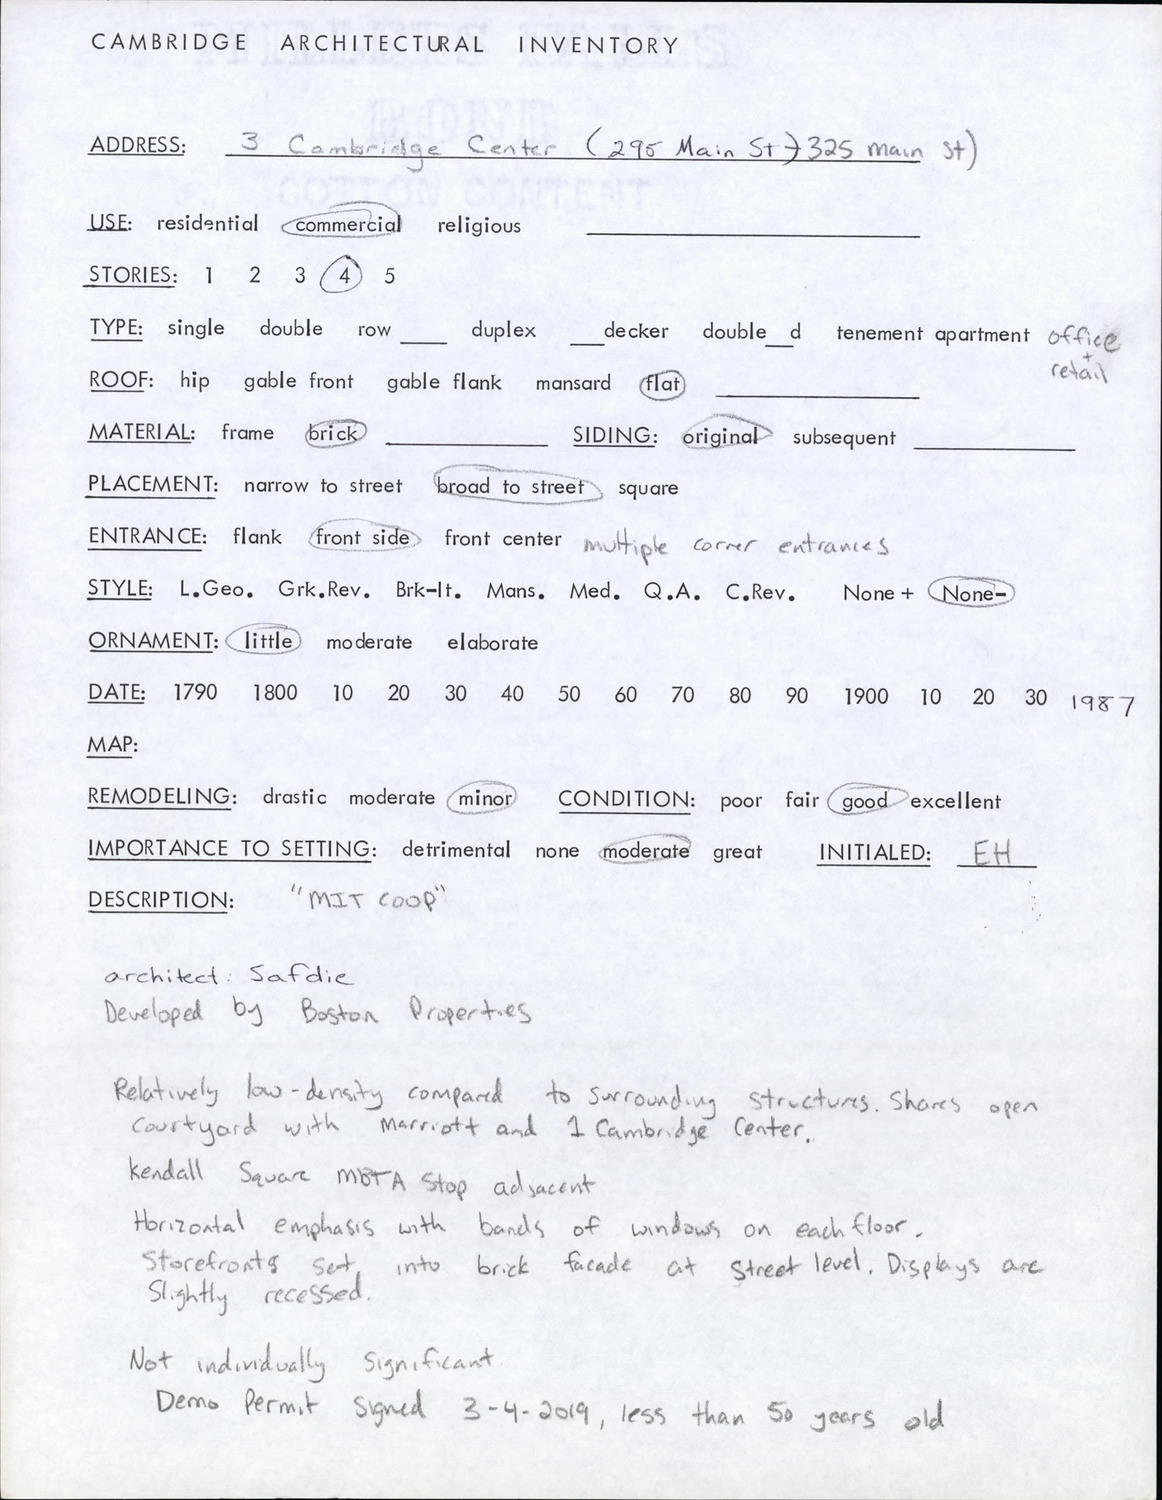 CAMBRIDGE ARCHITECTURAL INVENTORY
ADDRESS: 3 Cambridge Center (295 Main St → 325 main St)
USE: residential commercial religious
STORIES: 1 2 3 4 5
TYPE: single double row ___ duplex ___decker double__d tenement apartment office
+
retail
ROOF: hip gable front gable flank mansard flat
MATERIAL: frame brick SIDING: original subsequent
PLACEMENT: narrow to street broad to street square
ENTRANCE: flank front side front center multiple corner entrances
STYLE: L.Geo. Grk.Rev. Brk-It. Mans. Med. Q.A. C.Rev. None + None-
ORNAMENT: little moderate elaborate
DATE: 1790 1800 10 20 30 40 50 60 70 80 90 1900 10 20 30 1987
MAP:
REMODELING: drastic moderate minor CONDITION: poor fair good excellent
IMPORTANCE TO SETTING: detrimental none moderate great INITIALED: EH
DESCRIPTION: "MIT COOP"
architect: Safdie
Developed by Boston Properties
Relatively low-density compared to surrounding structures. Shares open
courtyard with Marriott and 1 Cambridge Center.
Kendall Square MBTA Stop adjacent
Horizontal emphasis with bands of windows on each floor.
Storefronts set into brick facade at street level. Displays are
Slightly recessed.
Not individually Significant.
Demo Permit Signed 3-4-2019, less than 50 years old